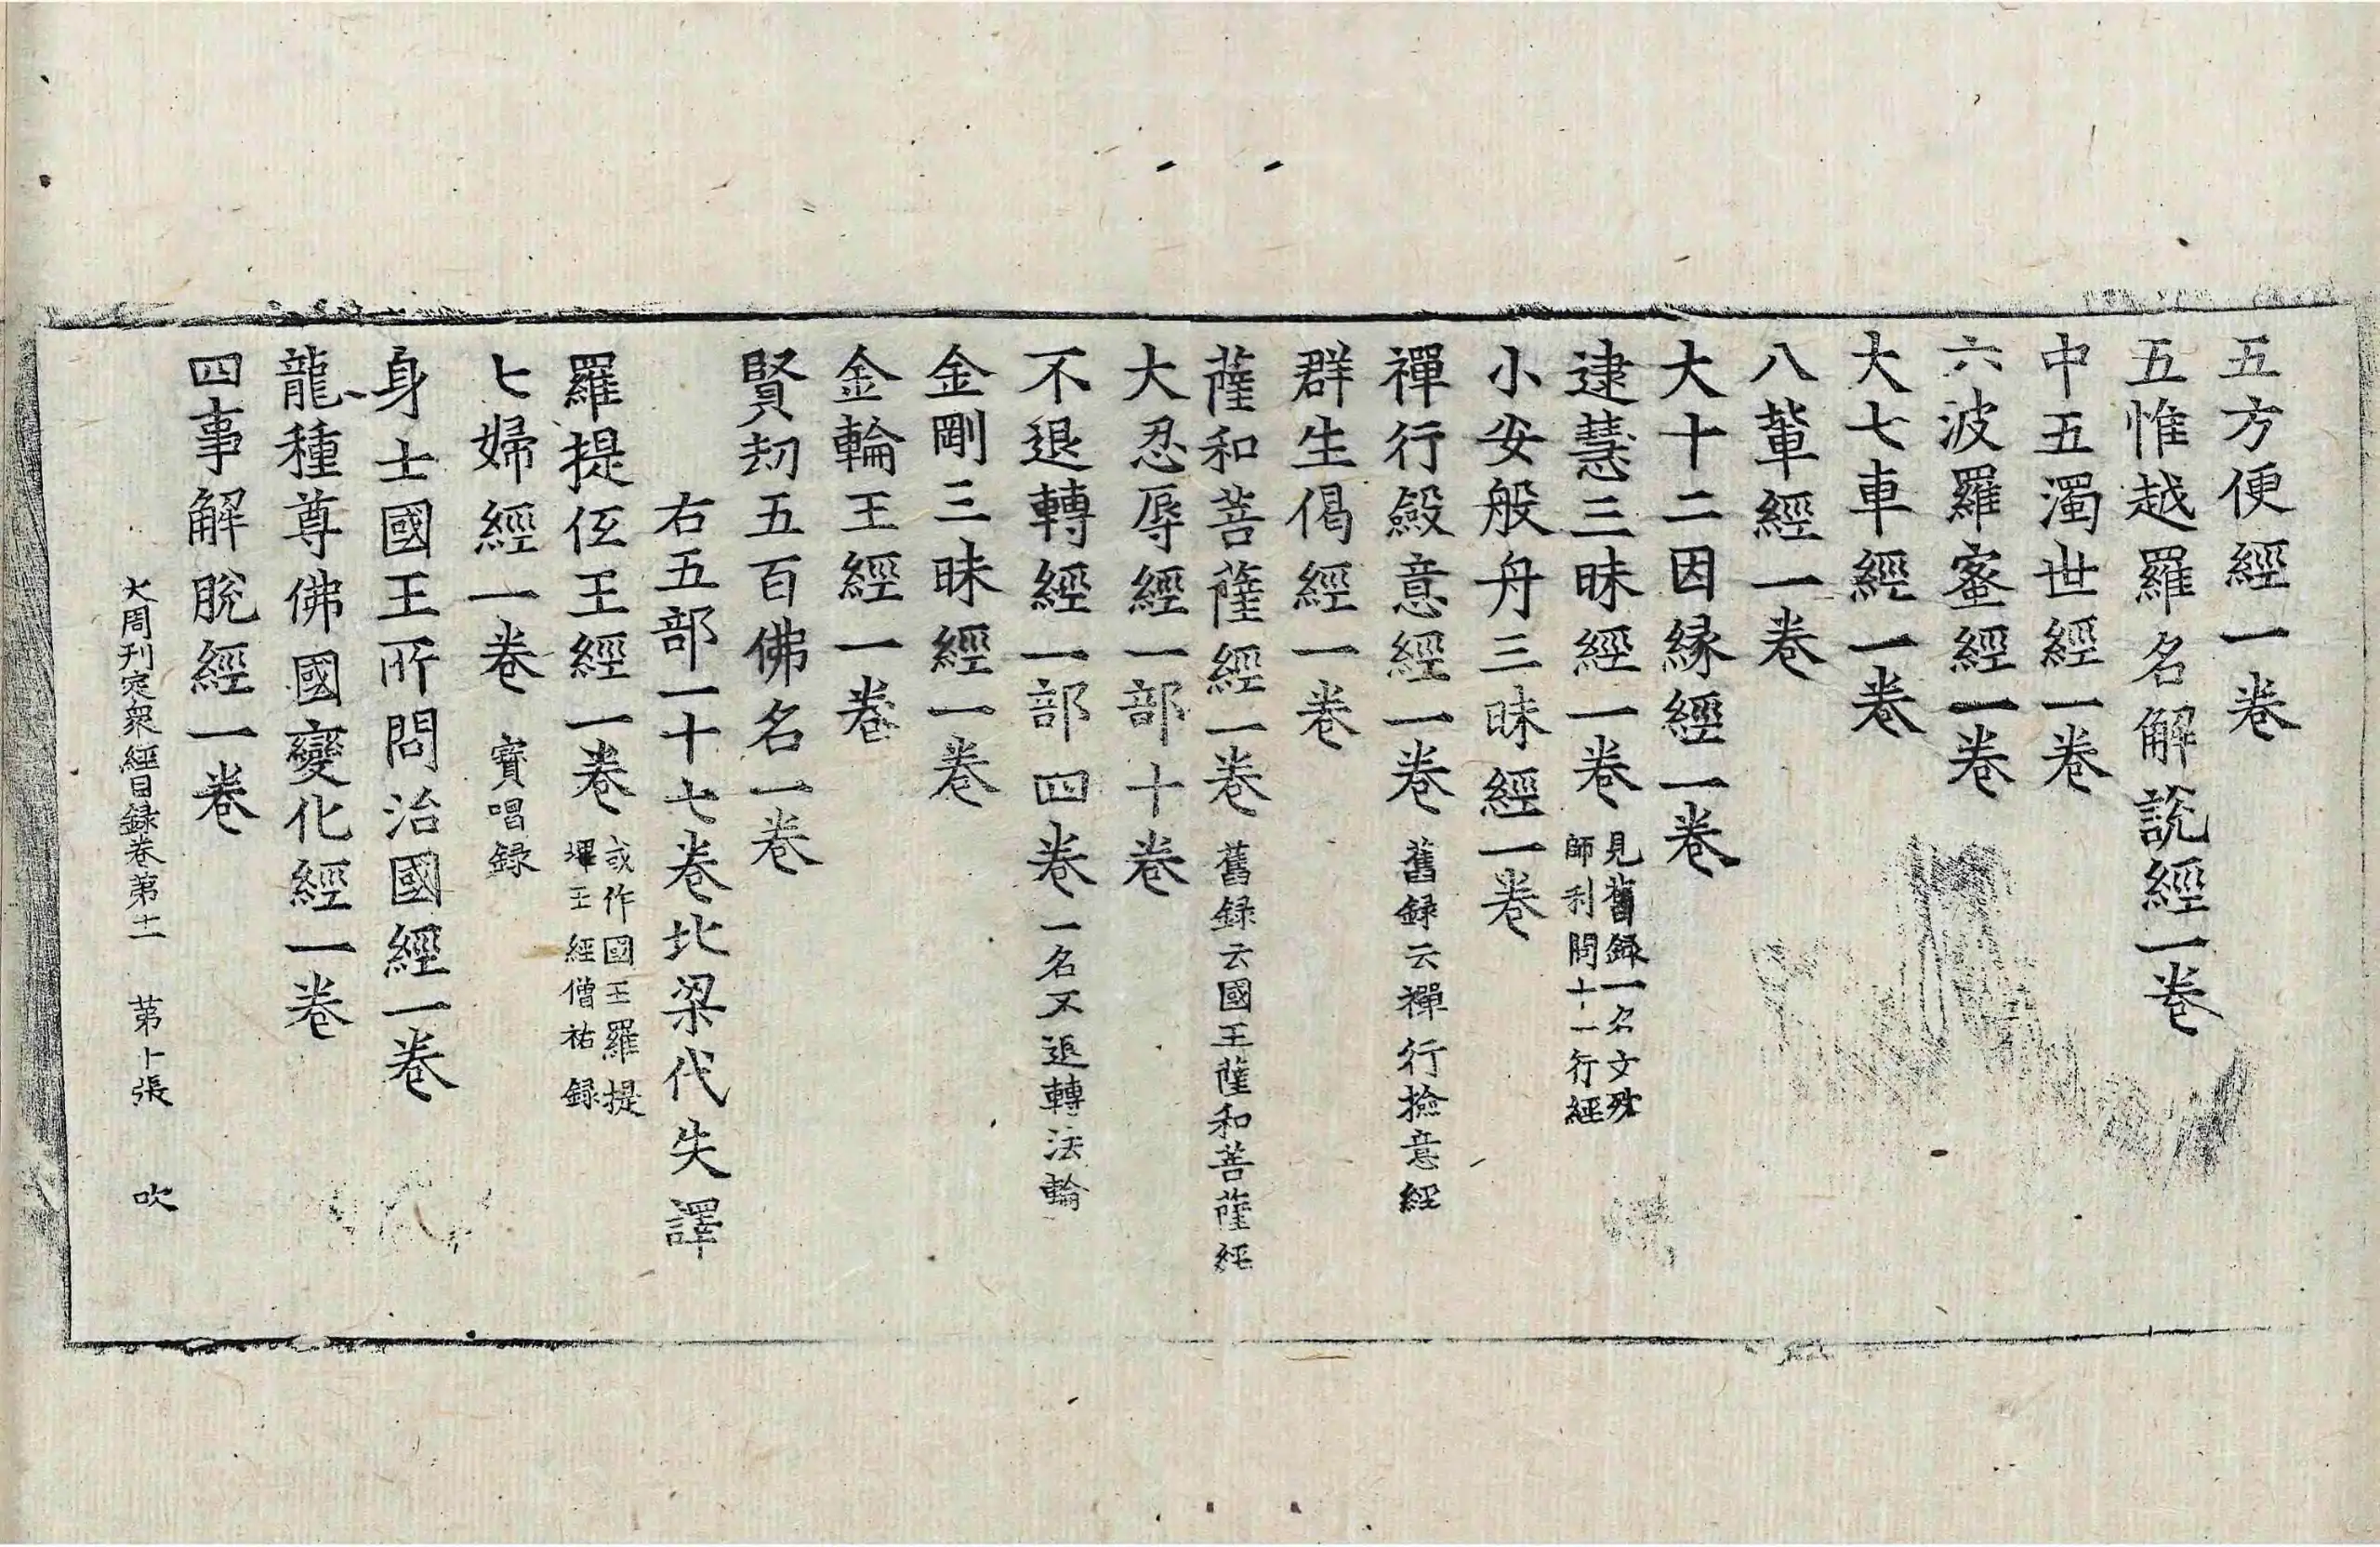 五方便經一卷
五惟越羅名解説經一卷
中五濁世經一卷
六波羅蜜經一卷
大七車經一卷
八軰經一卷
大十二因縁經一卷
逮慧三昧經一卷 見舊録一名文殊師利問十一行經
小安般舟三昧經一卷
禪行斂意經一卷 舊録云禪行撿意經
群生偈經一卷
薩和菩薩經一卷 舊録云國王薩和菩薩經
大忍辱經一部十卷
不退轉經一部四卷 一名不退轉法輪
金剛三昧經一卷
金輪王經一卷
賢劫五百佛名一卷
右五部一十七卷北梁代失譯
羅提伍王經一卷 或作國王羅提墠王經僧祐録
七婦經一卷 寳唱録
身士國王所問治國經一卷
龍種尊佛國變化經一卷
四事解脫經一卷
大周刊定衆經目録卷第十一 第卜張 吹